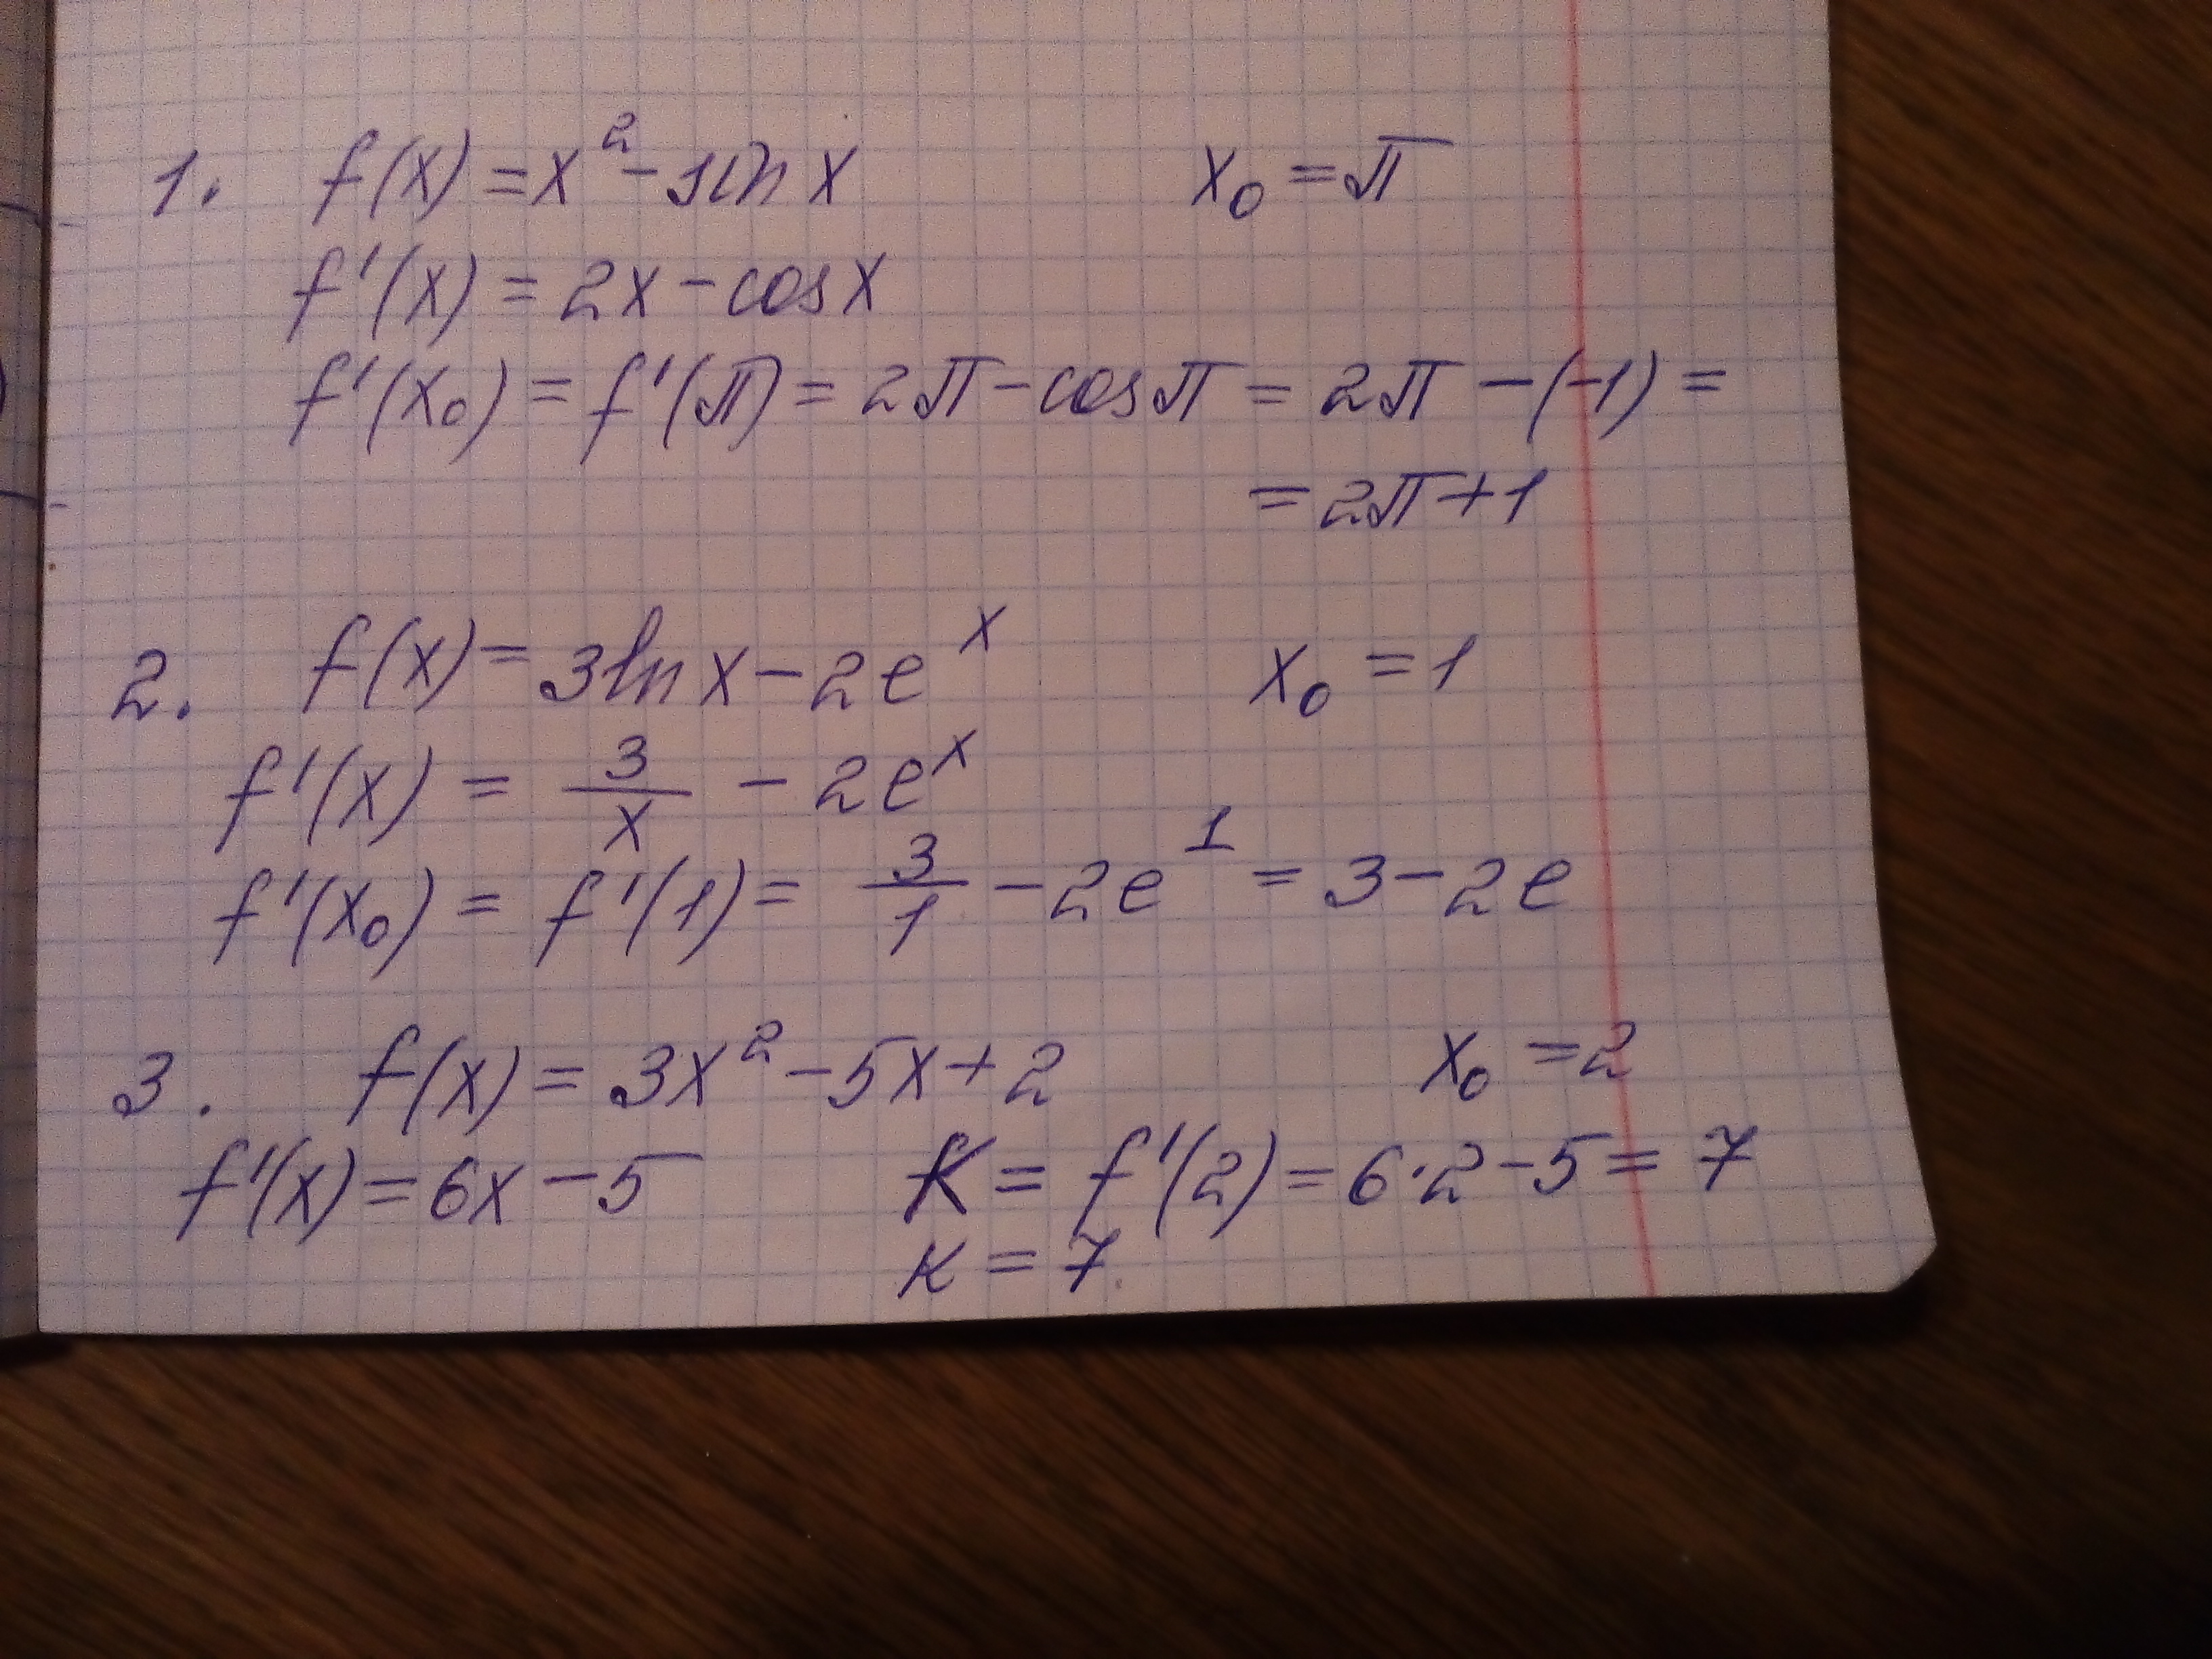 1. f(x) = x² - sin x x₀ = π
f'(x) = 2x - cos x
f'(x₀) = f'(π) = 2π - cos π = 2π - (-1) =
= 2π + 1
2. f(x) = 3 ln x - 2eˣ x₀ = 1
f'(x) = 3/x - 2eˣ
f'(x₀) = f'(1) = 3/1 - 2e¹ = 3 - 2e
3. f(x) = 3x² - 5x + 2 x₀ = 2
f'(x) = 6x - 5 K = f'(2) = 6·2 - 5 = 7
K = 7